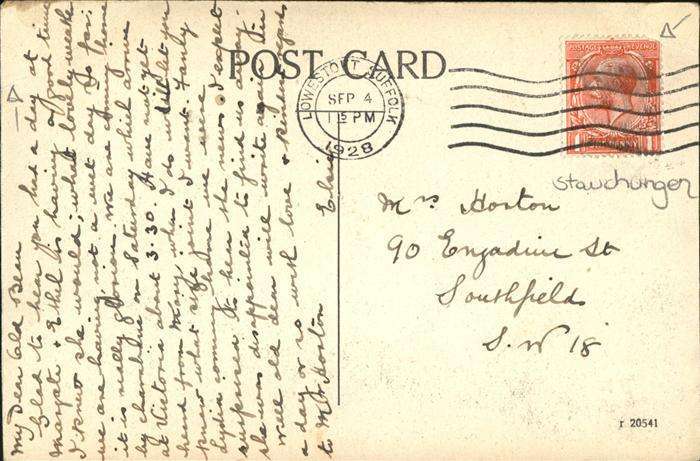 POST CARD
LOWESTOFT SUFFOLK
SEP 4
1 15 PM
1928
POSTAGE REVENUE
stauchungen
Mrs Horton
90 Engadine St
Southfields
S.W 18
r 20541
My Dear Old Bean
Glad to hear you had a day at
Margate & Ethel is having a good time
I knew she would; what lovely weather
we are having not a wet day so far:
it is really glorious. We are coming home
by charabanc on Saturday which arrives
at Victoria about 3.30. Have not yet
heard from Mary, when I do will let you
know what size joint I want. Fancy
Lydia coming home we were
surprised to hear the news. I expect
she was disappointed to find us away.
Well old dear will write again in
a day or so with love & kind regards
to Mr Horton
Elsie